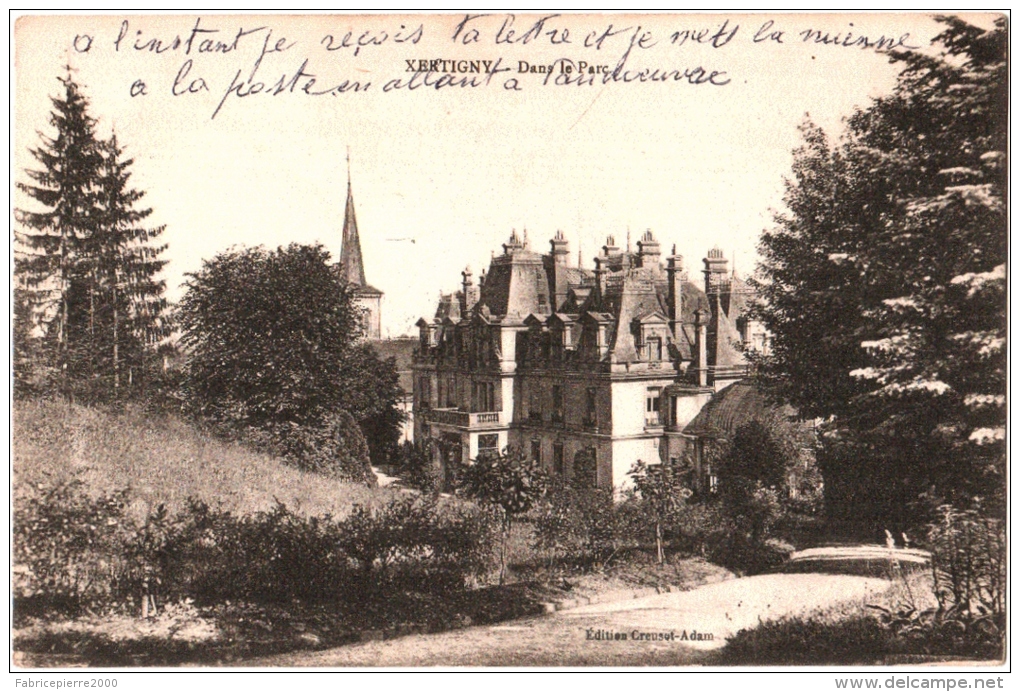 a l'instant je reçois ta lettre et je mets la mienne
XERTIGNY - Dans le Parc
a la poste en allant a
Edition Creusot-Adam
Fabricepierre2000
www.delcampe.net